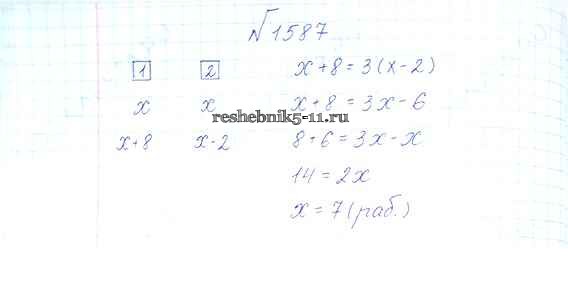 №1587
1 2
x x
x+8 x-2
x+8=3(x-2)
x+8=3x-6
8+6=3x-x
14=2x
x=7(раб.)
reshebnik5-11.ru